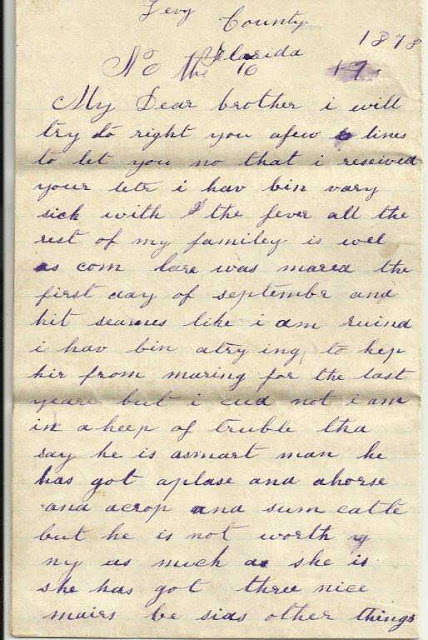 Levy
County
Florida 1878
No the 16 17
My Dear brother i will
try to right you afew lines
to let you no that i reseived
your leter i hav bin vary
sick with the fever all the
rest of my familey is wel
as com lara was mared the
first day of septembr and
hit seames like i am ruind
i hav bin atry ing to kep
hir from maring for the last
yeare but i cud not i am
in a heep of truble tha
say he is asmart man he
has got aplase and ahorse
and acrop and sum catle
but he is not worth
ny as much as she is
she has got three nice
mairs be sids other things